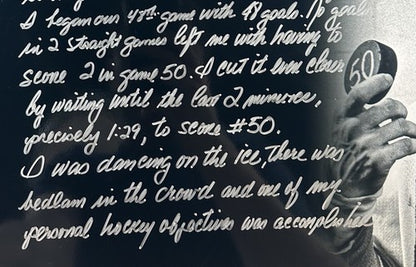 I began our 48th game with 48 goals. No goals
in 2 straight games left me with having to
score 2 in game 50. I cut it even closer
by waiting until the last 2 minutes,
precisely 1:29, to score #50.
I was dancing on the ice, There was
bedlam in the crowd and one of my
personal hockey objectives was accomplished
50